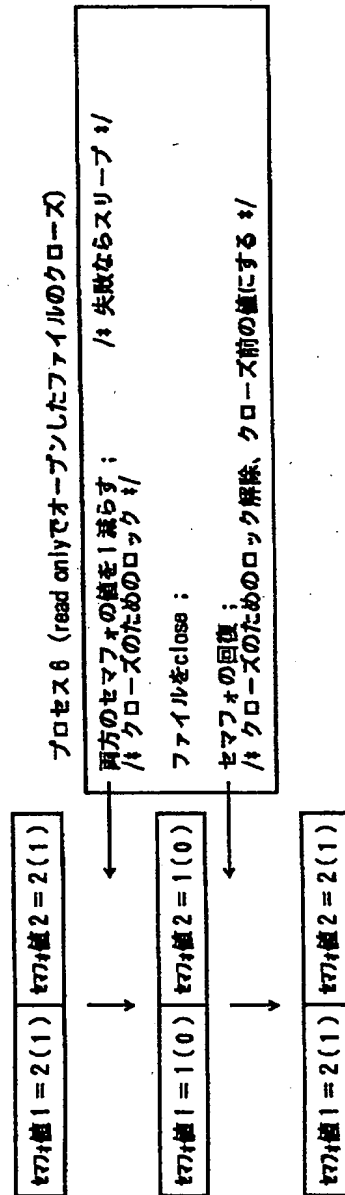 プロセス6 (read onlyでオープンしたファイルのクローズ)
両方のセマフォの値を1減らす; /* 失敗ならスリープ */
/* クローズのためのロック */
ファイルをclose;
セマフォの回復;
/* クローズのためのロック解除、クローズ前の値にする */
セマフォ値1=2(1) セマフォ値2=2(1)
セマフォ値1=1(0) セマフォ値2=1(0)
セマフォ値1=2(1) セマフォ値2=2(1)